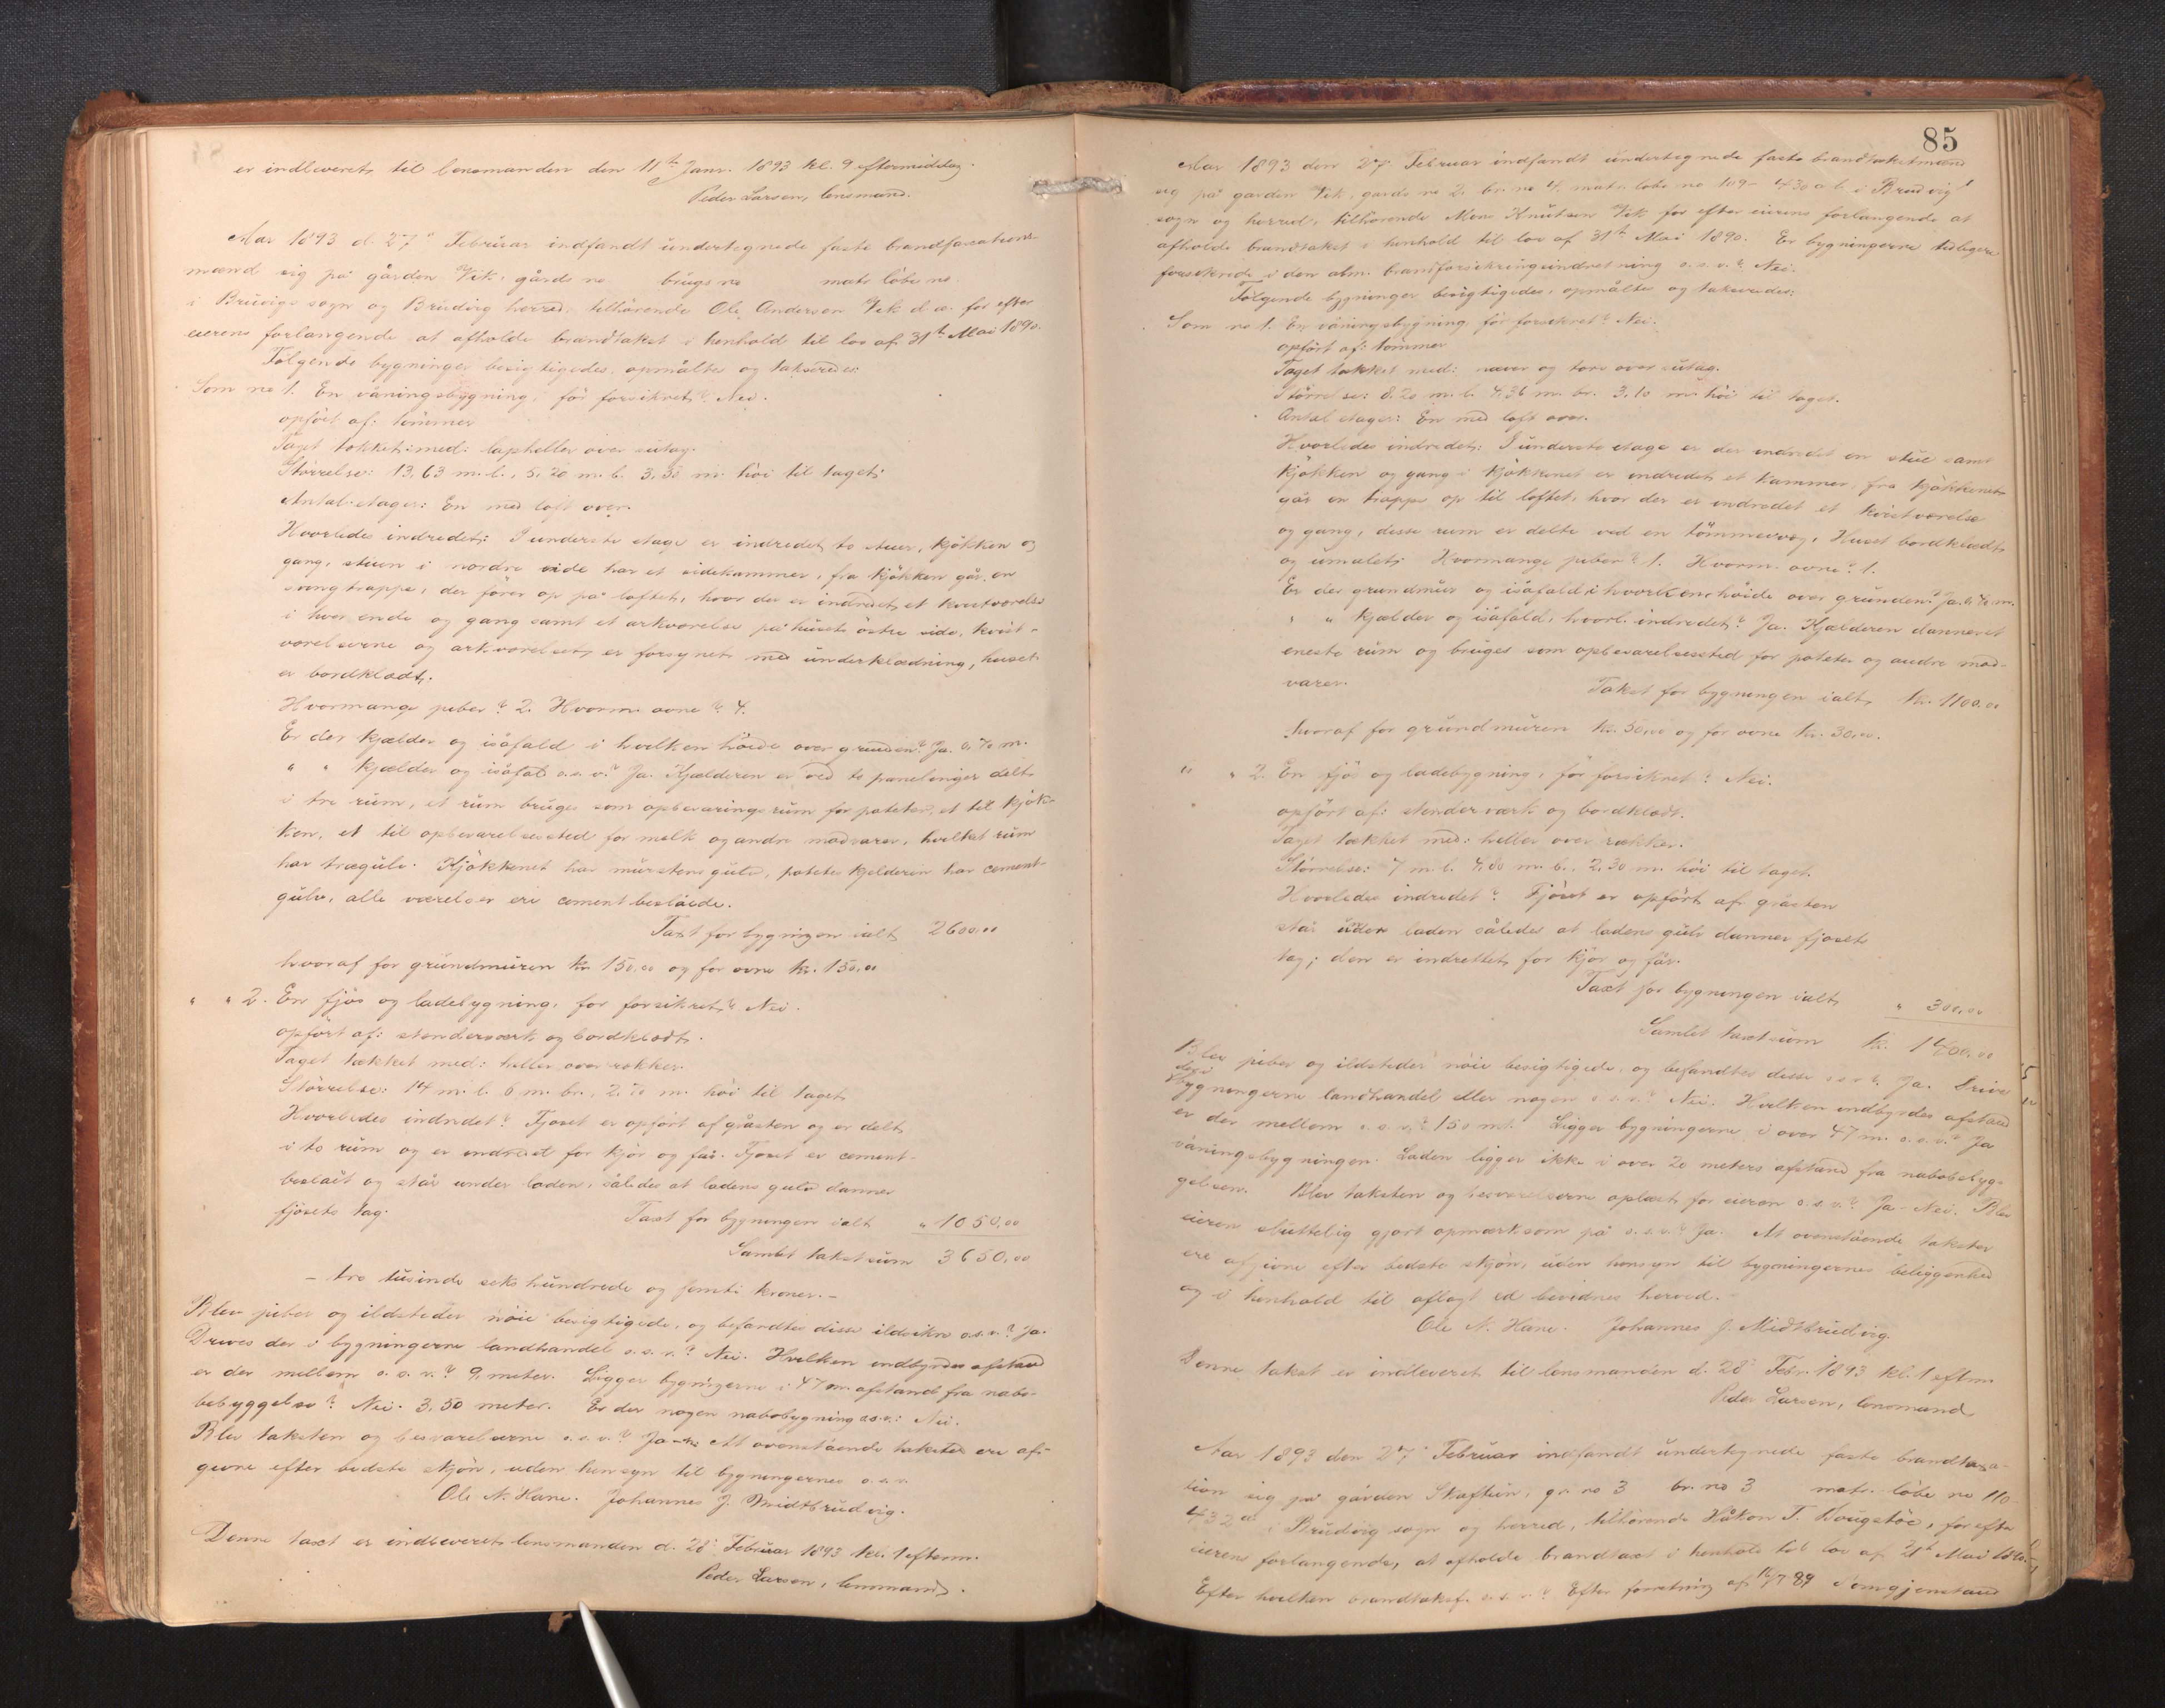 er indleveret til lensmanden den 11te Janr. 1893 kl. 9 eftermiddag.
Peder Larsen, lensmand.
Aar 1893 d. 27" Februar indfandt undertegnede faste brandtaxations-
mænd sig på gården Vik, gårds no brugs no matr. löbe no
i Bruvigs sogn og Brudvig herred, tilhörende Ole Andersen Vik d.æ. for efter
eierens forlangende at afholde brandtakst i henhold til lov af 31te Mai 1890.
Fölgende bygninger besigtigedes, opmåltes og takseredes:
Som no 1. En våningsbygning, för forsikret? Nei.
opfört af: tömmer
Taget tækket med: lapheller over sutag.
Störrelse: 13,63 m. l., 5,20 m. b. 3,30 m. höi til taget.
Antal etager: En med loft over.
Hvorledes indredet: I underste etage er indredet to stuer, kjökken og
gang, stuen i nordre side har et sidekammer, fra kjökken går en
svingtrappe, der förer op på loftet, hvor der er indredet et kvistværelse
i hver ende og gang samt et arkværelse på husets östre side, kvist-
værelserne og arkværelset er forsynet med underklædning, huset
er bordklædt.
Hvormange piber? 2. Hvorm. ovne? 4.
Er der kjælder og isåfald i hvilken höide over grunden? Ja. 0,70 m.
" " kjælder og isåfal o.s.v.? Ja. Kjælderen er ved to panelinger delt
i tre rum, et rum bruges som opbevaringsrum for poteter, et til kjök-
ken, et til opbevarelsessted for melk og andre madvarer, hvilket rum
har trægulv. Kjökkenet har murstensgulv, potetekjelderen har cement-
gulv, alle værelser ere cementbeslåede.
Taxt for bygningen ialt 2600,00
hvoraf for grundmuren kr. 150,00 og for ovne kr. 150,00
" " 2. En fjös og ladebygning, för forsikret? Nei.
opfört af: stenderværk og bordklædt.
Taget tækket med: heller over rækker.
Störrelse: 14 m. l. 6 m. br., 2,70 m. höi til taget.
Hvorledes indredet? Fjöset er opfört af gråsten og er delt
i to rum og er indredet for kjör og får. Fjöset er cement-
beslåit og står under laden, således at ladens gulv danner
fjösets tag. Taxt for bygningen ialt " 1050,00
Samlet takstsum 3650,00
– tre tusinde seks hundrede og femti kroner. –
Blev piber og ildsteder nöie besigtigede, og befandtes disse ildsikre o.s.v.? Ja.
Drives der i bygningerne landhandel o.s.v.? Nei. Hvilken indbyrdes afstand
er der mellem o.s.v.? 9 meter. Ligger bygningerne i 47 m. afstand fra nabo-
bebyggelse? Nei. 3,50 meter. Er der nogen nabobygning o.s.v.: Nei.
Blev taksten og besvarelserne o.s.v.? Ja At ovenstående takster ere afi-
givne efter bedste skjön, uden hensyn til bygningernes o.s.v.
Ole N. Hane. Johannes J. Midtbrudvig.
Denne taxt er indleveret lensmanden d. 28' Februar 1893 kl. 1 efterm.
Peder Larsen, lensmand.
85
Aar 1893 den 27' Februar indfandt undertegnede faste brandtakstmænd
sig på garden Vik, gards no 2. br. no 4. matr. löbe no 109 – 430 a b. i Brudvig
sogn og herred, tilhörende Mons Knutsen Vik for efter eierens forlangende at
afholde brandtakst i henhold til lov af 31te Mai 1890. Er bygningerne tidligere
forsikrede i den alm. brandforsikringsindretning o.s.v.? Nei.
Fölgende bygninger besigtigedes, opmåltes og takseredes:
Som no 1. En våningsbygning, för forsikret? Nei.
opfört af: tömmer
Taget tækket med: næver og torv over sutag.
Störrelse: 8,20 m. l. 4,36 m. br. 3,10 m. höi til taget.
Antal etager: En med loft over.
Hvorledes indredet: I underste etage er der indredet en stue samt
kjökken og gang i kjökkenet er indredet et kammer, fra kjökkenet
går en trappe op til loftet, hvor der er indredet et kvistværelse
og gang, disse rum er delte ved en tömmervæg, Huset bordklædt
og umalet. Hvormange piber? 1. Hvorm. ovne? 1.
Er der grundmur og isåfald i hvilken höide over grunden? Ja.
" " kjælder og isåfald, hvorl. indredet? Ja. Kjælderen danner et
eneste rum og bruges som opbevarelsessted for poteter og andre mad-
varer. Takst for bygningen ialt kr. 1100.00
hvoraf for grundmuren kr. 50,00 og for ovne kr. 30,00.
" " 2. En fjös og ladebygning, för forsikret? Nei.
opfört af: stenderværk og bordklædt.
Taget tækket med: heller over rækker.
Störrelse: 7 m. l. 4,80 m. b., 2,30 m. höi til taget.
Hvorledes indredet? Fjöset er opfört af gråsten
står under laden således at ladens gulv danner fjösets
tag; den er indrettet for kjör og får.
Taxt for bygningen ialt " 300,00
Samlet taxtsum kr. 1400,00
Blev piber og ildsteder nöie besigtigede, og befandtes disse o.s.v.? Ja. Drives
der i bygningerne landhandel eller nogen o.s.v.? Nei. Hvilken indbyrdes afstand
er der mellem o.s.v.? 150 mt. Ligger bygningerne i over 47 m. o.s.v.? Ja
våningsbygningen. Laden ligger ikke i over 20 meters afstand fra nabobebyg-
gelsen. Blev taksten og besvarelserne oplæst for eieren o.s.v.? Ja – Nei. Blev
eieren sluttelig gjort opmærksom på o.s.v.? Ja. At ovenstående takster
ere afgivne efter bedste skjön, uden hensyn til bygningernes beliggenhed
og i henhold til aflagt ed bevidnes herved.
Ole N. Hane. Johannes J. Midtbrudvig.
Denne takst er indleveret til lensmanden d. 28' Febr. 1893 kl. 1 eftm.
Peder Larsen, lensmand
Aar 1893 den 27' Februar indfandt undertegnede faste brandtaxa-
tion sig på gården Skaftun, gr. no 3 br. no 3 matr. löbe no 110
432 a i Brudvig sogn og herred, tilhörende Håkon T. Bougstöe, for efter
eierens forlangende, at afholde brandtaxt i henhold til lov af 31te Mai 1890.
Efter hvilken brandtakst. o.s.v.? Efter forretning af 16/7 89 Som gjenstand